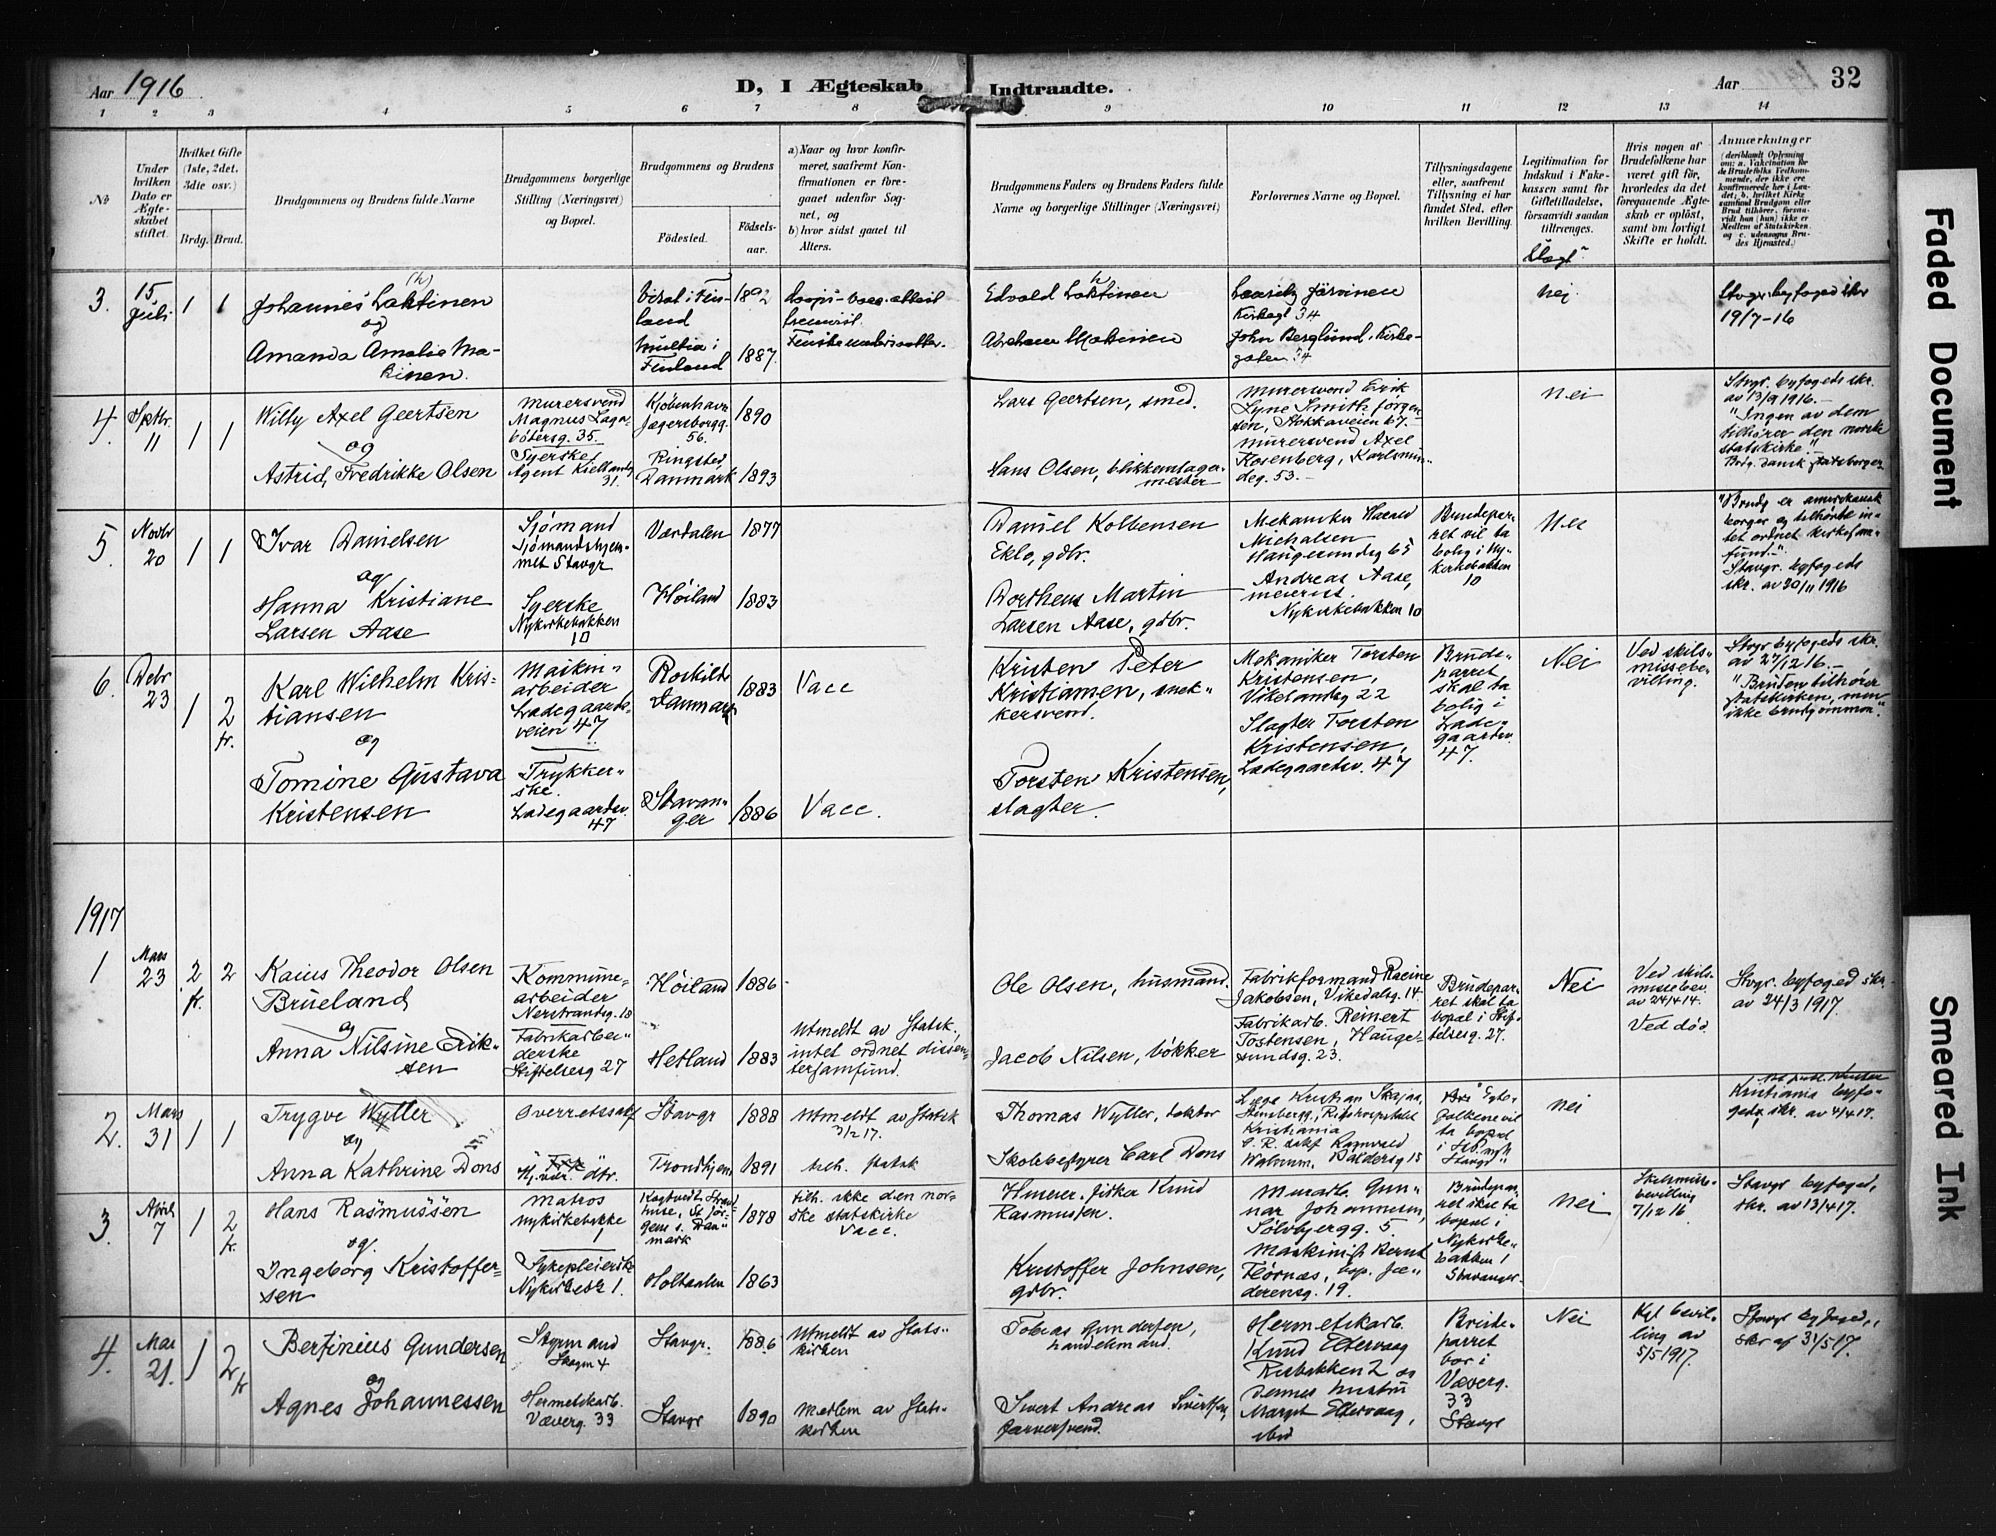 Aar 1916
D, I Ægteskab Indtraadte.
Aar
32
1 2 3 4 5 6 7 8 9 10 11 12 13 14
№
Under hvilken Dato er Ægte-skabet stiftet.
Hvilket Gifte (1ste, 2det. 3die osv.)
Brdg. Brud.
Brudgommens og Brudens fulde Navne
Brudgommens borgerlige Stilling (Næringsvei) og Bopæl.
Brudgommens og Brudens
Fødested.
Fødsels-aar.
a) Naar og hvor konfir-meret, saafremt Kon-firmationen er fore-gaaet udenfor Sog-net, og
b) hvor sidst gaaet til Alters.
Brudgommens Faders og Brudens Faders fulde Navne og borgerlige Stillinger (Næringsvei)
Forlovernes Navne og Bopæl.
Tillysningsdagene eller, saafremt Tillysning ei har fundet Sted, efter hvilken Bevilling.
Legitimation for Indskud i Enke-kassen samt for Giftetilladelse, forsaavidt saadan tiltrænges.
Hvis nogen af Brudefolkene har været gift før, hvorledes da det foregaaende Ægte-skab er opløst, samt om lovligt Skifte er holdt.
Anmærkninger
(deriblandt Oplysning om: a. Vakcination for de Brudefolks Vedkom-mende, der ikke ere konfirmerede her i Lan-det; b. hvilket Kirke-samfund Brudgom eller Brud tilhører, forsaa-vidt han (hun) ikke er Medlem af Statskirken og c. udensogns Bru-des Hjemsted.)
3. 15 Juli 1 1
Johannes Laktinen
og
Amanda Amalie Ma-
kinen.
Finland
1892
1887.
Edvald Laktinen
Abraham Makinen
Kirkegt 34
John Berglund, Kirke-
gaten 34
nej.
Stvgr. byfoged skr
19/7-16
4. Septbr. 11 1 1
Willy Axel Geertsen
og
Astrid Fredrikke Olsen
Murersvend
Magnus Laga-
bøtersg. 35.
Syerske
Agent Kiellandsg
31.
Kjøbenhavn
Jægersborgg.
56.
Ringsted,
Danmark
1890
1893
Lars Geertsen, smed.
Hans Olsen, blikkenslager-
mester
Murersvend Erik
Lyne Smith Jørgen-
sen, Stokkaveien 67.-
Murersvend Axel
Rosenberg, Karlsmin-
deg. 53.-
Nei
Stvgr. byfogeds skr.
av 13/9 1916.-
"Ingen av dem
tilhører den norske
statskirke."-
Brdg. dansk statsborger
5. Novbr 20 1 1
Ivar Danielsen
og
Hanna Kristiane
Larsen Aase
Sjømand
Sjømandshjem-
met Stavgr
Syerske
Nykirkebakken
10
Værdalen
Høiland
1877
1883
Daniel Kolbensen
Eklo, gdbr.
Dortheus Martin
Larsen Aase, gdbr.
Mekaniker Harald
Michalsen
Haugesundsg 65
Andreas Aase,
meierist.
Nykirkebakken 10
Brudepar-
ret vil ta
bolig i Ny-
kirkebakken
10
Nei
"Brudg er amerikansk
borger og tilhørte in-
tet ordnet kirkesam-
fund."-
Stavgr. byfogeds
skr. av 20/11 1916
6. Debr 23 1 2 fr.
Karl Wilhelm Kris-
tiansen
og
Tomine Gustava
Kristensen
Maskin-
arbeider
Ladegaards-
veien 47
Trykker-
ske.
Ladegaardsv.
47
Roskilde
Danmark
Stavan-
ger
1883
1886
Vacc
Vacc.
Kristen Peter
Kristiansen, snek-
kersvend.
Torsten Kristensen,
slagter.
Mekaniker Torsten
Kristensen,
Vikelandsg 22
Slagter Torsten
Kristensen,
Ladegaardsv. 47
Brude-
parret
skal ta
bolig i
Lade-
gaardsv.
47.
Nei
Ved skils-
missebe-
villing.
Stvgr byfogeds skr.
av 27/12 16.-
"Bruden tilhører
statskirken, men
ikke brudgommen".
1917
1 Mars 23 2 fr. 2
Kaius Theodor Olsen
Brueland
og
Anna Nilsine Erik-
sen
Kommune-
arbeider
Nerstrandsg. 18
Fabrikarbei-
derske
Stiftelsesg 27
Høiland
Hetland
1886
1883
Utmeldt av Statsk.,
intet ordnet dissen-
tersamfund.
Ole Olsen, husmand.
Jacob Nilsen, bøkker
Fabrikformand Racine
Jakobsen, Vikedalsg. 14.
Fabrikarb. Reinert
Tostensen, Hauge-
sundsg. 23.
Brudepar-
ret skal ta
bopæl i Stif-
telsesg. 27.
Nei
Ved skils-
missebev.
av 24/4 14.
Ved død.
Stvgr. byfoged skr.
av 24/3 1917.
2. Mars 31 1 1
Trygve Wyller
og
Anna Kathrine Dons
Overretssakf
Hj.vær. dtr.
Stavgr
Trondhjem
1888
1891
Utmeldt av Statsk
3/2 17.
tilh. statsk
Thomas Wyller, doktor
Skolebestyrer Carl Dons
Kristiania
nei
Kristiania byfo-
geds skr. av 4/4 17.
3. April 7 1 2 fr.
Hans Rasmussen
og.
Ingeborg Kristoffer-
sen
Matros
Nykirkebakke
1
Sykepleierske
Nykirkebak 1.
Holtaalen
1878
1863
tilh. ikke den nor-
ske statskirke
Vacc.
Hmeier. fisker Knud
Rasmussen.
Kristoffer Johnsen,
gdbr.
Murarb. Gun-
nar Johannesen,
Sølvbjergg. 5.
Maskinist Bernt
Flørnæs, bop. Jæ-
derensg. 19.
Brudepar-
ret skal ta
bopæl i
Nykirke-
bakken 1
Stavanger.
nei
Skilsmisse-
bevilling
7/12 16
Stavgr byfoged,
skr. av 13/4 17.
4. Mai 21. 1 2 fr
Bertinius Gundersen
og
Agnes Johannessen
Styrmand
Hermetikarb.
Væverg. 33
Stavgr.
Stavgr
1886
1890
Utmeldt av Stats-
kirken
Medlem av Stats-
kirken
Tobias Gundersen,
handelsmand.
Sivert Andreas Sivertsen,
farversvend.
Hermetikarb.
Knud Eltervaag
Risbakken 2 og
dennes hustru
Margit Eltervaag,
ibid
Brude-
parret
bor i
Væverg.
33
Stavgr
Nei
Kgl bevil-
ling av
5/5 1917.
Stavgr byfoged,
skr af 31/5 17.
Faded Document
Smeared Ink